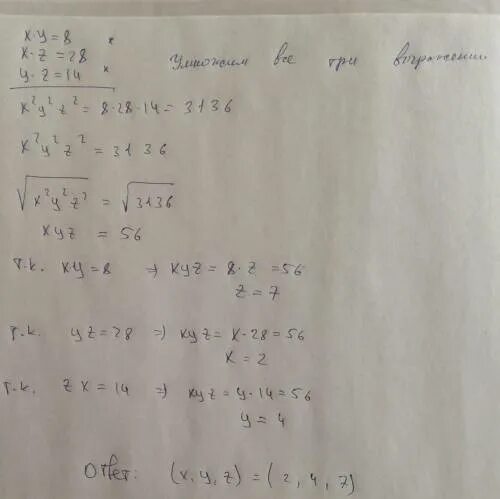 x·y=8 x
x·z=28
y·z=14 x
Умножим все три выражения
x²y²z²=8·28·14=3136
x²y²z²=3136
√x²y²z² = √3136
xyz = 56
т.к. xy=8 ⇒ xyz=8·z=56
z=7
т.к. yz=28 ⇒ xyz=x·28=56
x=2
т.к. zx=14 ⇒ xyz=y·14=56
y=4
Ответ: (x,y,z)=(2,4,7)